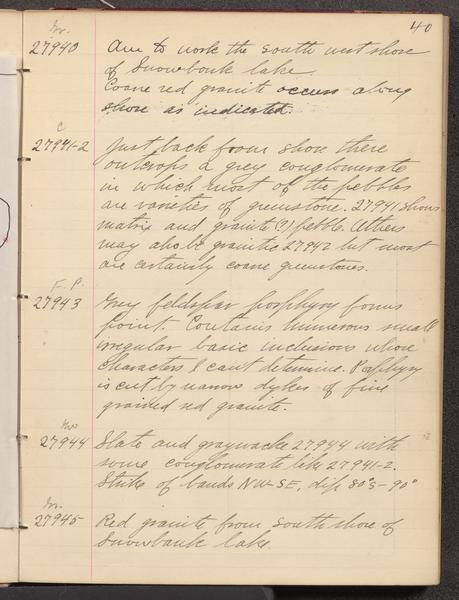 40
Gr.
27940 Am to work the south west shore
of Snowbank lake.
Coarse red granite occurs along
shore as indicated.
C
27941-2 Just back from shore there
outcrops a grey conglomerate
in which most of the pebbles
are varieties of greenstone. 27941 shows
matrix and granite (?) pebble. Others
may also be granite 27942 but most
are certainly coarse greenstones.
F. P.
27943 Grey feldspar porphyry forms
point. Contains numerous small
irregular basic inclusions whose
characters I cant determine. Porphyry
is cut by narrow dykes of fine
grained red granite.
27944 Slate and graywacke 27944 with
some conglomerate like 27941-2.
Strike of bands NW-SE, dip 80°S-90°
Gr.
27945 Red granite from south shore of
Snowbank lake.